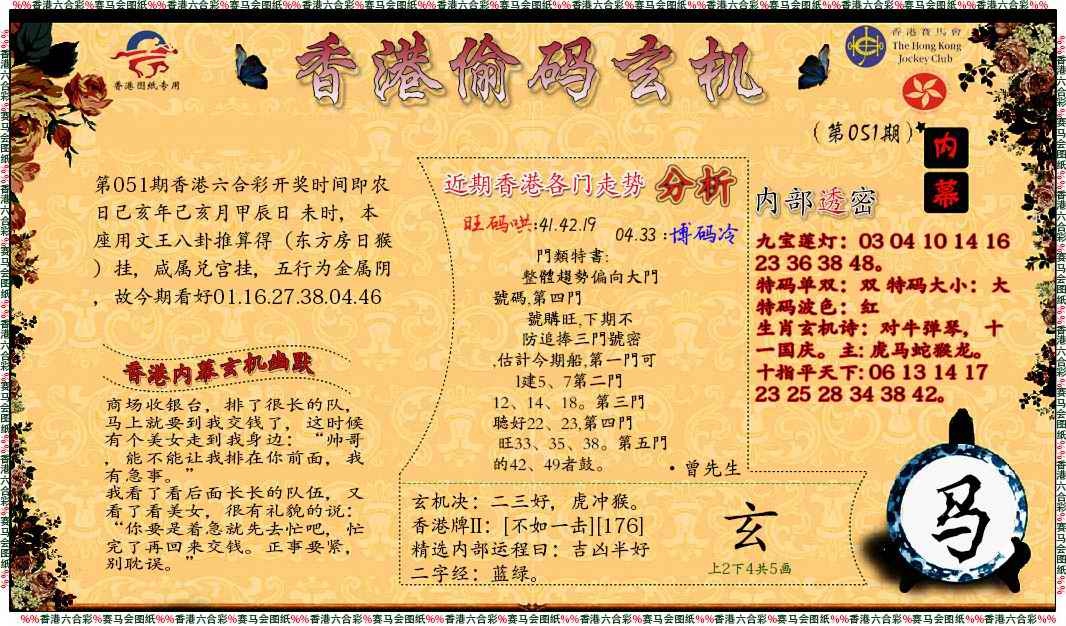 %%香港六合彩%赛马会图纸%%香港六合彩%赛马会图纸%%香港六合彩%赛马会图纸%%香港六合彩%赛马会图纸%%香港六合彩%赛马会图纸%%香港六合彩%赛马会图纸%%香港六合彩%赛马会图纸%%香港六合彩%%
香港图纸专用
香港偷码玄机
香港賽馬會
The Hong Kong
Jockey Club
（第051期）
内
幕
第051期香港六合彩开奖时间即农
日己亥年己亥月甲辰日 未时，本
座用文王八卦推算得（东方房日猴
）挂，咸属兑宫挂，五行为金属阴
，故今期看好01.16.27.38.04.46
香港内幕玄机幽默
商场收银台，排了很长的队，
马上就要到我交钱了，这时候
有个美女走到我身边：“帅哥
，能不能让我排在你前面，我
有急事。”
我看了看后面长长的队伍，又
看了看美女，很有礼貌的说：
“你要是着急就先去忙吧，忙
完了再回来交钱。正事要紧，
别耽误。”
近期香港各门走势 分析
旺码哄:41.42.19
04.33 :博码冷
門類特書:
整體趨勢偏向大門
號碼,第四門
號購旺,下期不
防追捧三門號密
,估計今期船,第一門可
1建5、7第二門
12、14、18。第三門
聽好22、23,第四門
旺33、35、38。第五門
的42、49者鼓。
•曾先生
玄机决：二三好，虎冲猴。
香港牌II：[不如一击][176]
精选内部运程曰：吉凶半好
二字经：蓝绿。
玄
上2下4共5画
内部透密
九宝莲灯：03 04 10 14 16
23 36 38 48。
特码单双：双 特码大小：大
特码波色：红
生肖玄机诗：对牛弹琴，十
一国庆。主: 虎马蛇猴龙。
十指平天下: 06 13 14 17
23 25 28 34 38 42。
马
%%香港六合彩%赛马会图纸%%香港六合彩%赛马会图纸%%香港六合彩%赛马会图纸%%香港六合彩%赛马会图纸%%香港六合彩%赛马会图纸%%香港六合彩%赛马会图纸%%香港六合彩%赛马会图纸%%香港六合彩%%